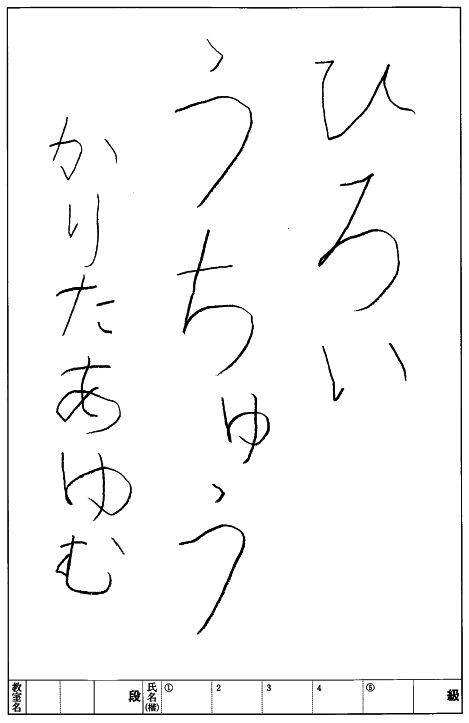 ひろい
うちゅう
かりたあゆむ
教室名 段 氏名(楷) ① 2 3 4 ⑤ 級